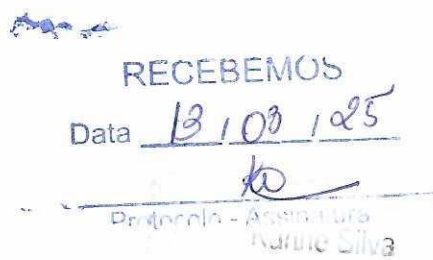 RECEBEMOS
Data 13 / 03 / 25
Protocolo - Assinatura
Karine Silva